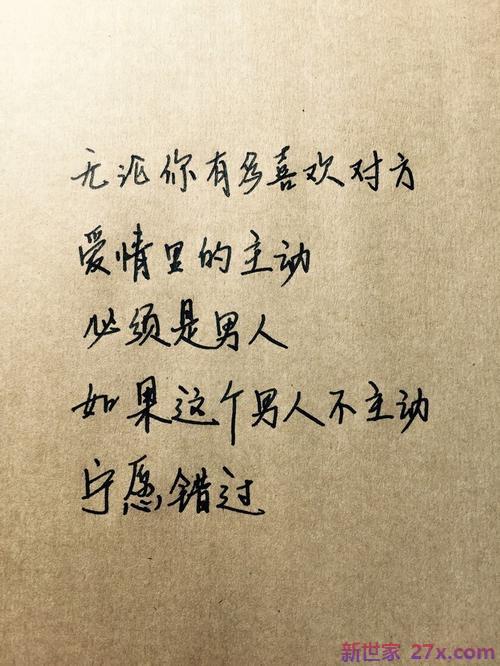 无论你有多喜欢对方
爱情里的主动
必须是男人
如果这个男人不主动
宁愿错过
新世家 27x.com